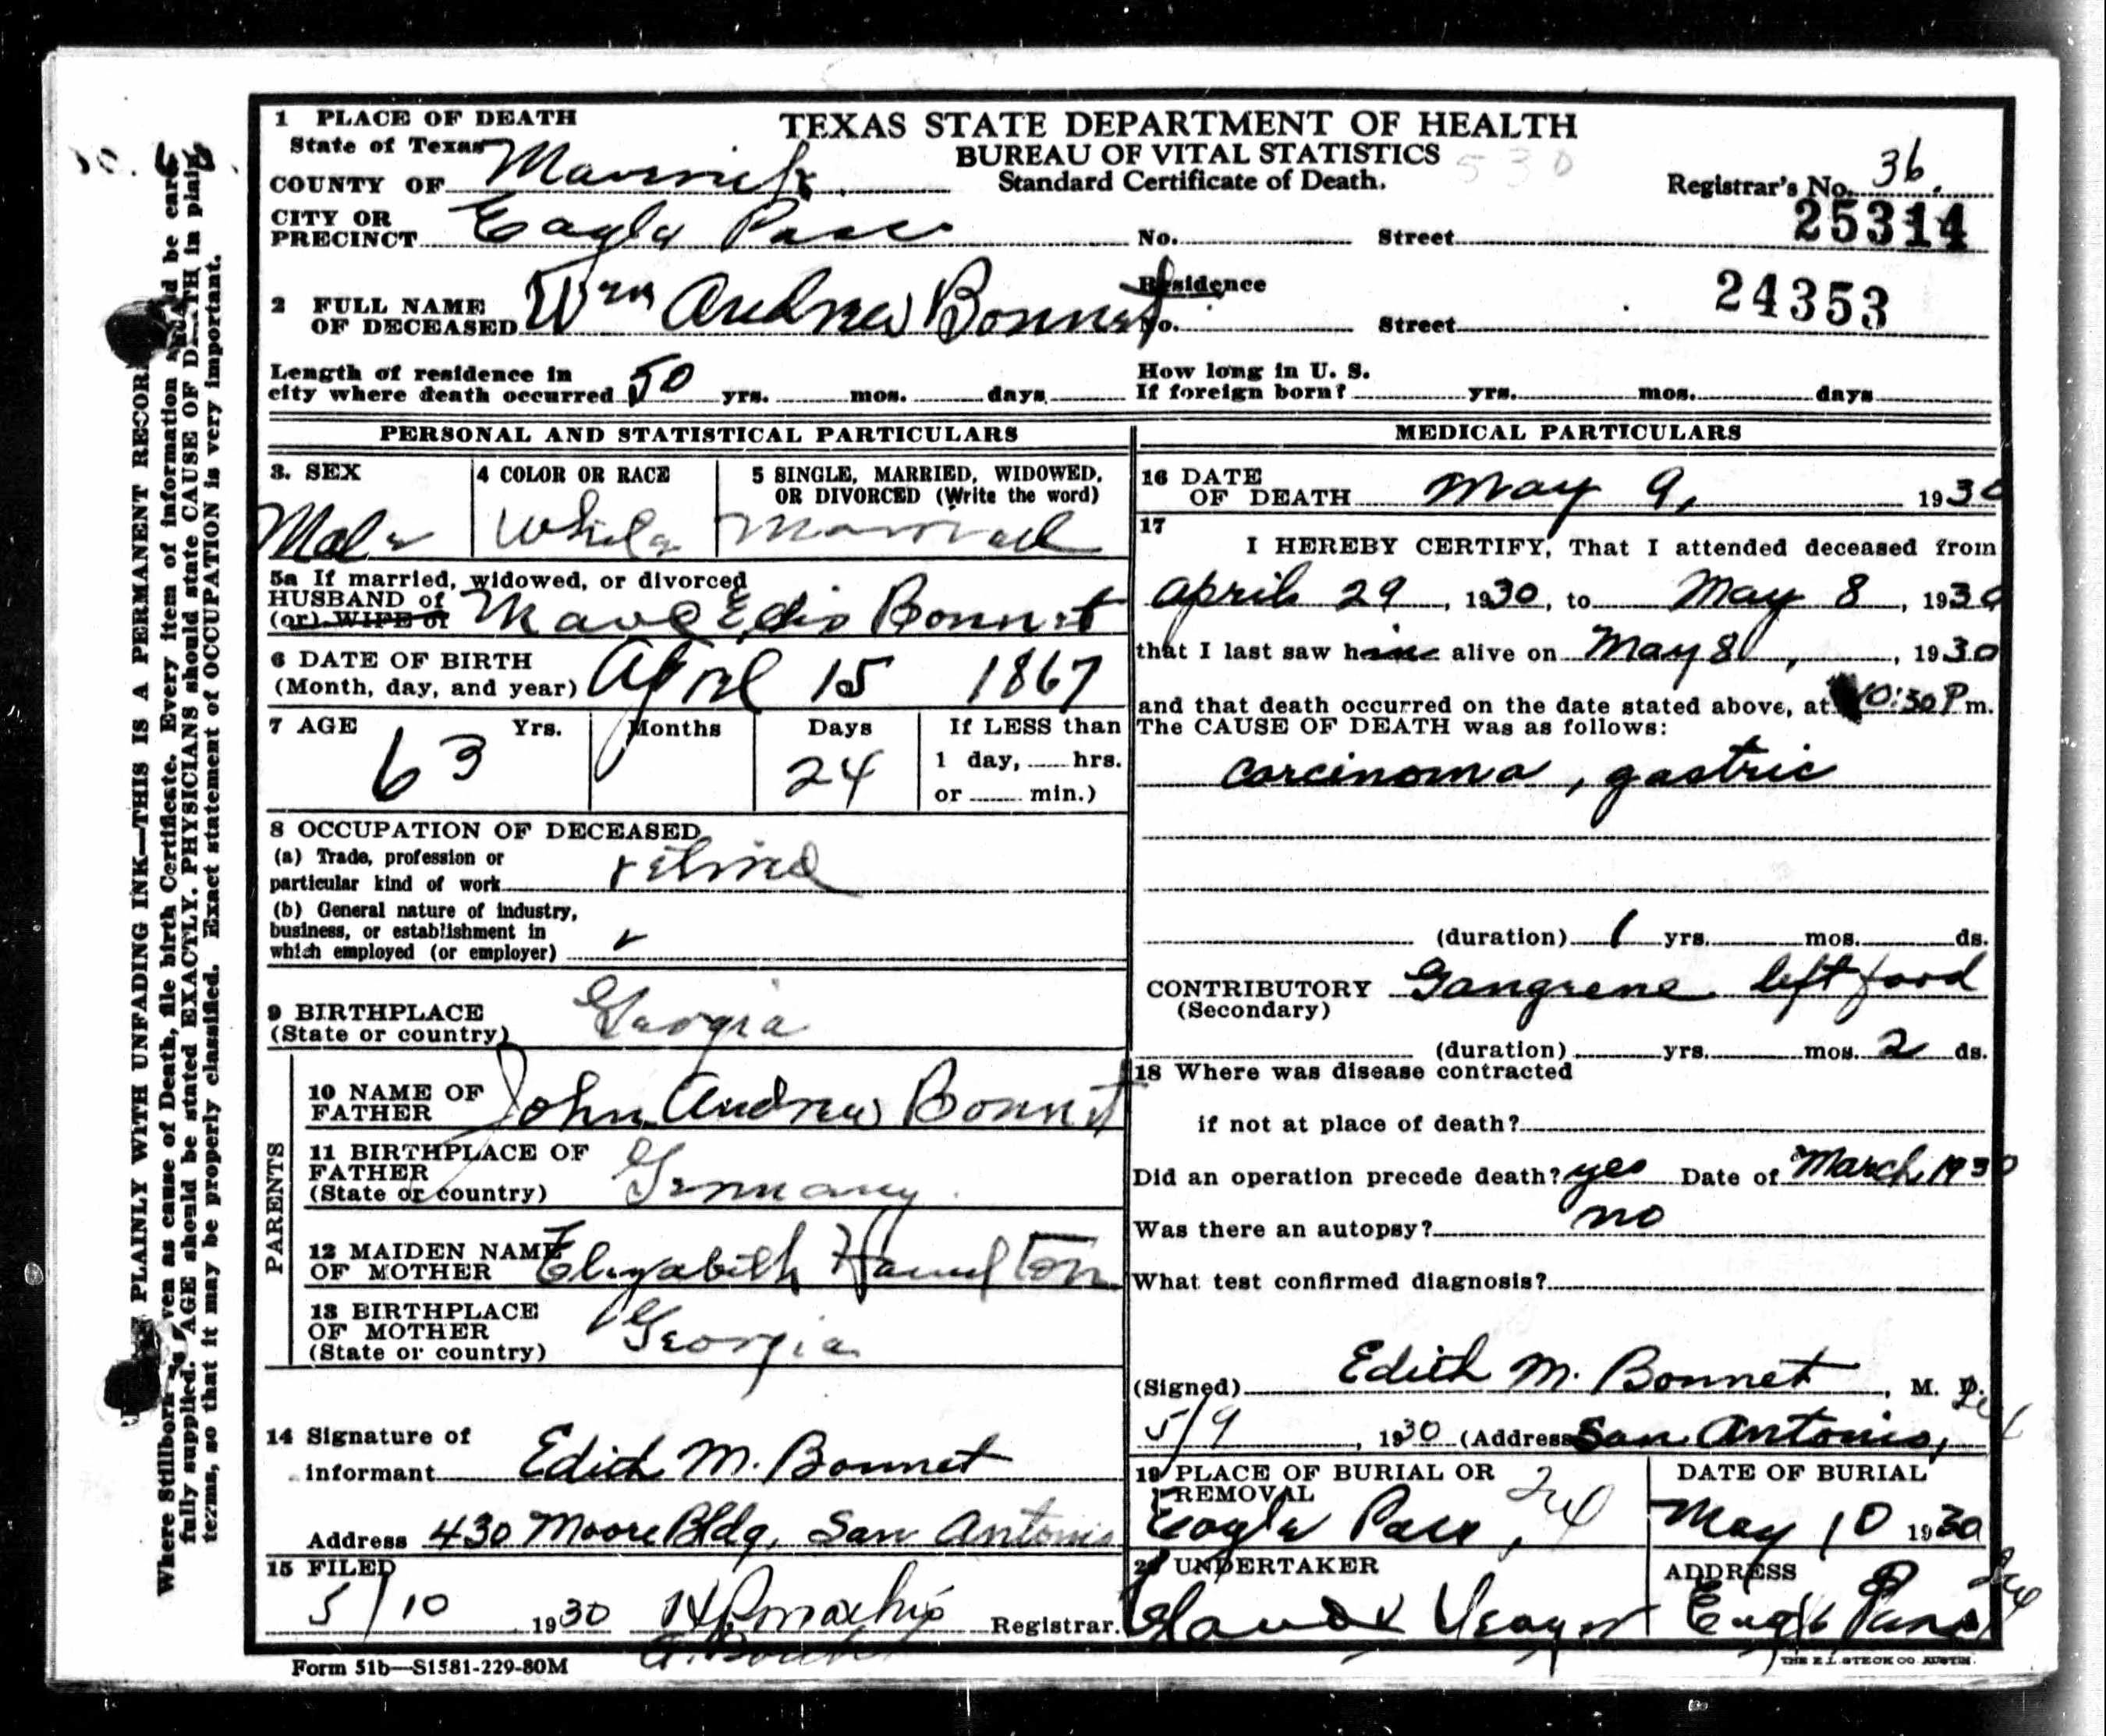 1 PLACE OF DEATH
TEXAS STATE DEPARTMENT OF HEALTH
State of Texas
BUREAU OF VITAL STATISTICS
530
COUNTY OF Maverick
Standard Certificate of Death.
Registrar's No. 36.
25314
CITY OR PRECINCT Eagle Pass No. Street
24353
2 FULL NAME OF DECEASED Wm Andrew Bonnet
Residence No. Street
Length of residence in city where death occurred 50 yrs. mos. days
How long in U. S. If foreign born? yrs. mos. days
PERSONAL AND STATISTICAL PARTICULARS
3. SEX
Male
4 COLOR OR RACE
White
5 SINGLE, MARRIED, WIDOWED,
OR DIVORCED (Write the word)
Married
5a If married, widowed, or divorced
HUSBAND of
(or) WIFE of
Bonnet
6 DATE OF BIRTH
(Month, day, and year) April 15 1867
7 AGE
63 Yrs.
Months
Days
24
If LESS than
1 day, hrs.
or min.)
8 OCCUPATION OF DECEASED
(a) Trade, profession or
particular kind of work retired
(b) General nature of industry,
business, or establishment in
which employed (or employer)
9 BIRTHPLACE
(State or country) Georgia
PARENTS
10 NAME OF FATHER John Andrew Bonnet
11 BIRTHPLACE OF FATHER
(State or country) Germany
12 MAIDEN NAME OF MOTHER Elizabeth Hamilton
13 BIRTHPLACE OF MOTHER
(State or country) Georgia
14 Signature of
informant Edith M. Bonnet
Address 430 Moore Bldg, San Antonio
15 FILED
5/10 1930 Registrar.
MEDICAL PARTICULARS
16 DATE
OF DEATH May 9, 1930
17
I HEREBY CERTIFY, That I attended deceased from
April 29, 1930, to May 8, 1930
that I last saw him alive on May 8, 1930
and that death occurred on the date stated above, at 10:30 P m.
The CAUSE OF DEATH was as follows:
Carcinoma, gastric
(duration) 1 yrs. mos. ds.
CONTRIBUTORY Gangrene left
(Secondary)
(duration) yrs. mos. 2 ds.
18 Where was disease contracted
if not at place of death?
Did an operation precede death? yes Date of March 1930
Was there an autopsy? no
What test confirmed diagnosis?
(Signed) Edith M. Bonnet, M. D.
5/9, 1930 (Address San Antonio,
19 PLACE OF BURIAL OR
REMOVAL
Eagle Pass,
DATE OF BURIAL
May 10 1930
20 UNDERTAKER
ADDRESS
Eagle Pass
Form 51b—S1581-229-80M
THE E.L. STECK CO. AUSTIN.
PLAINLY WITH UNFADING INK—THIS IS A PERMANENT RECORD
Where Stillborn given as cause of Death, file birth Certificate. Every item of information should be care-
fully supplied. AGE should be stated EXACTLY. PHYSICIANS should state CAUSE OF DEATH in plain
terms, so that it may be properly classified. Exact statement of OCCUPATION is very important.